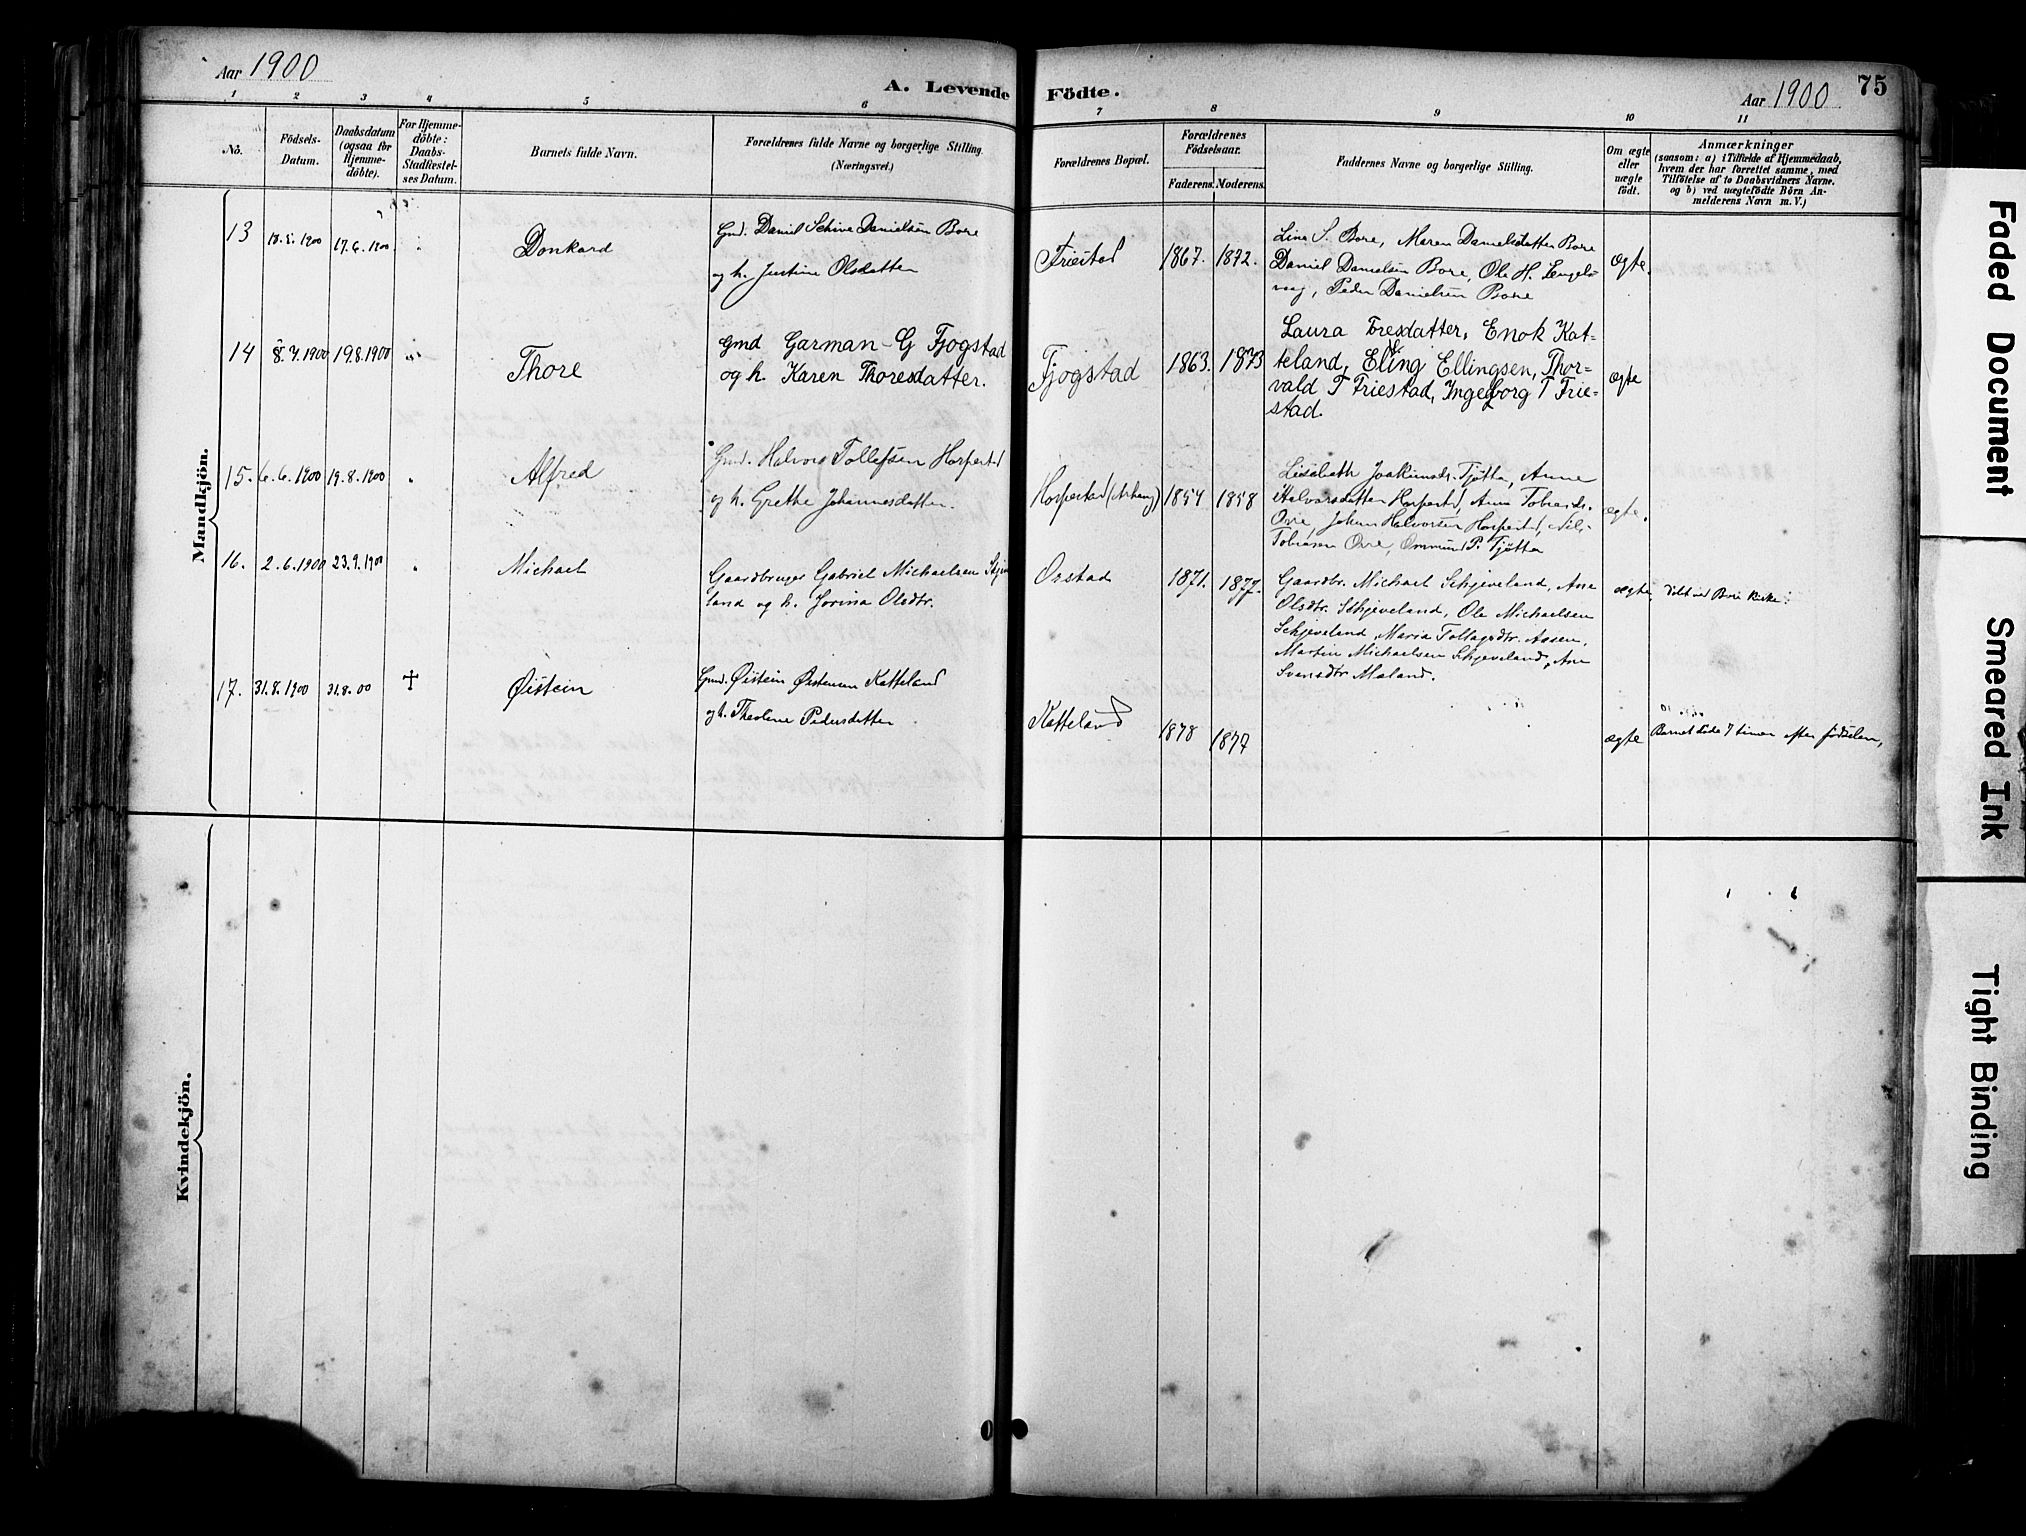 Aar 1900
A. Levende Födte.
Aar 1900
75
1 2 3 4 5 6 7 8 9 10 11
No.
Födsels-Datum.
Daabsdatum (ogsaa for Hjemme-döbte).
For Hjemme-döbte: Daabs-Stadfæstel-ses Datum.
Barnets fulde Navn.
Forældrenes fulde Navne og borgerlige Stilling. (Næringsvei.)
Forældrenes Bopæl.
Forældrenes Födselsaar.
Faderens. Moderens.
Faddernes Navne og borgerlige Stilling.
Om ægte eller uægte födt.
Anmærkninger
(saasom: a) i Tilfælde af Hjemmedaab,
hvem der har forrettet samme, med
Tilföielse af to Daabsvidners Navne,
og b) ved uægtefödte Börn An-
melderens Navn m. V.)
Mandkjön.
13 1900 17.6.1900 Donkard
Gmd. Daniel Schive Danielsen Bore
og h. Justine Olsdatter
Friestad 1867. 1872.
Line S. Bore, Maren Danielsdatter Bore
Daniel Danielsen Bore, Ole H. Engels-
vaag, Peder Danielsen Bore
ægte.
14 8.7.1900 19.8.1900 Thore
Gmd Garman G Fjogstad
og h. Karen Thoresdatter.
Fjogstad 1863. 1873
Laura Toresdatter, Enok Kat-
teland, Eling Ellingsen, Thor-
vald T Friestad, Ingeborg T Frie-
stad.
ægte
15. 6.6.1900 19.8.1900 Alfred
Gmd. Halvor Tollefsen Horpestd
og h. Grethe Johannesdatter.
Horpestad 1854 1858
Lisebeth Joakimsd. Tjøtta, Anne
Halvorsdatter Horpestd, Anna Tobiasds.
Orre, Johan Halvorsen Horpestd, Nils
Tobiasen Orre, Ommund P. Tjøtta
ægte.
16. 2.6.1900 23.9.1900 Michael
Gaardbruger Gabriel Michaelsen Skjæve
land og h. Jorina Olsdtr.
Orstad 1871. 1877.
Gaardbr. Michael Schjeveland, Ane
Olsdtr. Schjeveland, Ole Michaelsen
Schjeveland, Maria Tollagsdtr. Aasen,
Martin Michaelsen Schjeveland, Ane
Svensdtr Maland.
ægte Døbt ved Bore Kirke.
17. 31.8.1900 31.8.00 † Øistein
Gmd. Øistein Østensen Katteland
og h. Theoline Pedersdatter
Katteland 1878 1877
ægte Barnet døde 7 timer efter fødselen,
Kvindekjön.
Faded Document
Smeared Ink
Tight Binding